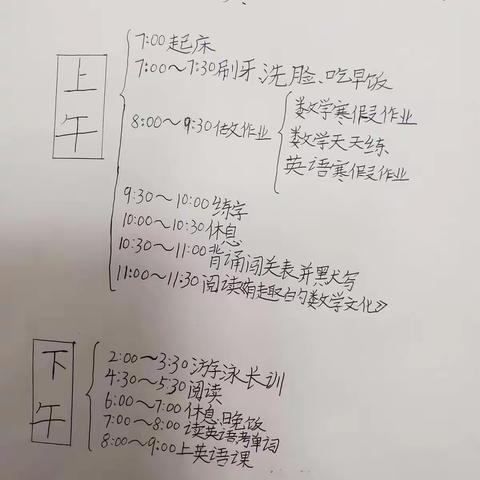 上午
7:00起床
7:00~7:30刷牙、洗脸、吃早饭
8:00~9:30做作业
数学寒假作业
数学天天练
英语寒假作业
9:30~10:00练字
10:00~10:30休息
10:30~11:00背诵闯关表并默写
11:00~11:30阅读《有趣的数学文化》
下午
2:00~3:30游泳长训
4:30~5:30阅读
6:00~7:00休息、晚饭
7:00~8:00读英语,考单词
8:00~9:00上英语课